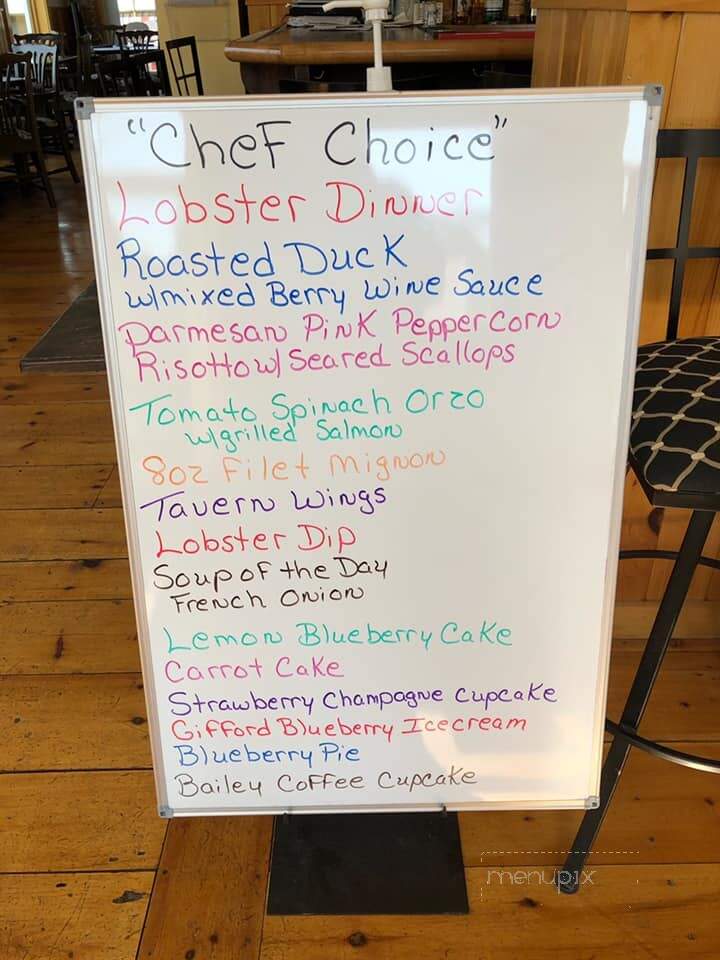 "Chef Choice"
Lobster Dinner
Roasted Duck
w/mixed Berry Wine Sauce
Parmesan Pink Peppercorn
Risotto w/ Seared Scallops
Tomato Spinach Orzo
w/grilled Salmon
8oz Filet Mignon
Tavern Wings
Lobster Dip
Soup of the Day
French Onion
Lemon Blueberry Cake
Carrot Cake
Strawberry Champagne Cupcake
Gifford Blueberry Icecream
Blueberry Pie
Bailey Coffee Cupcake
menupix